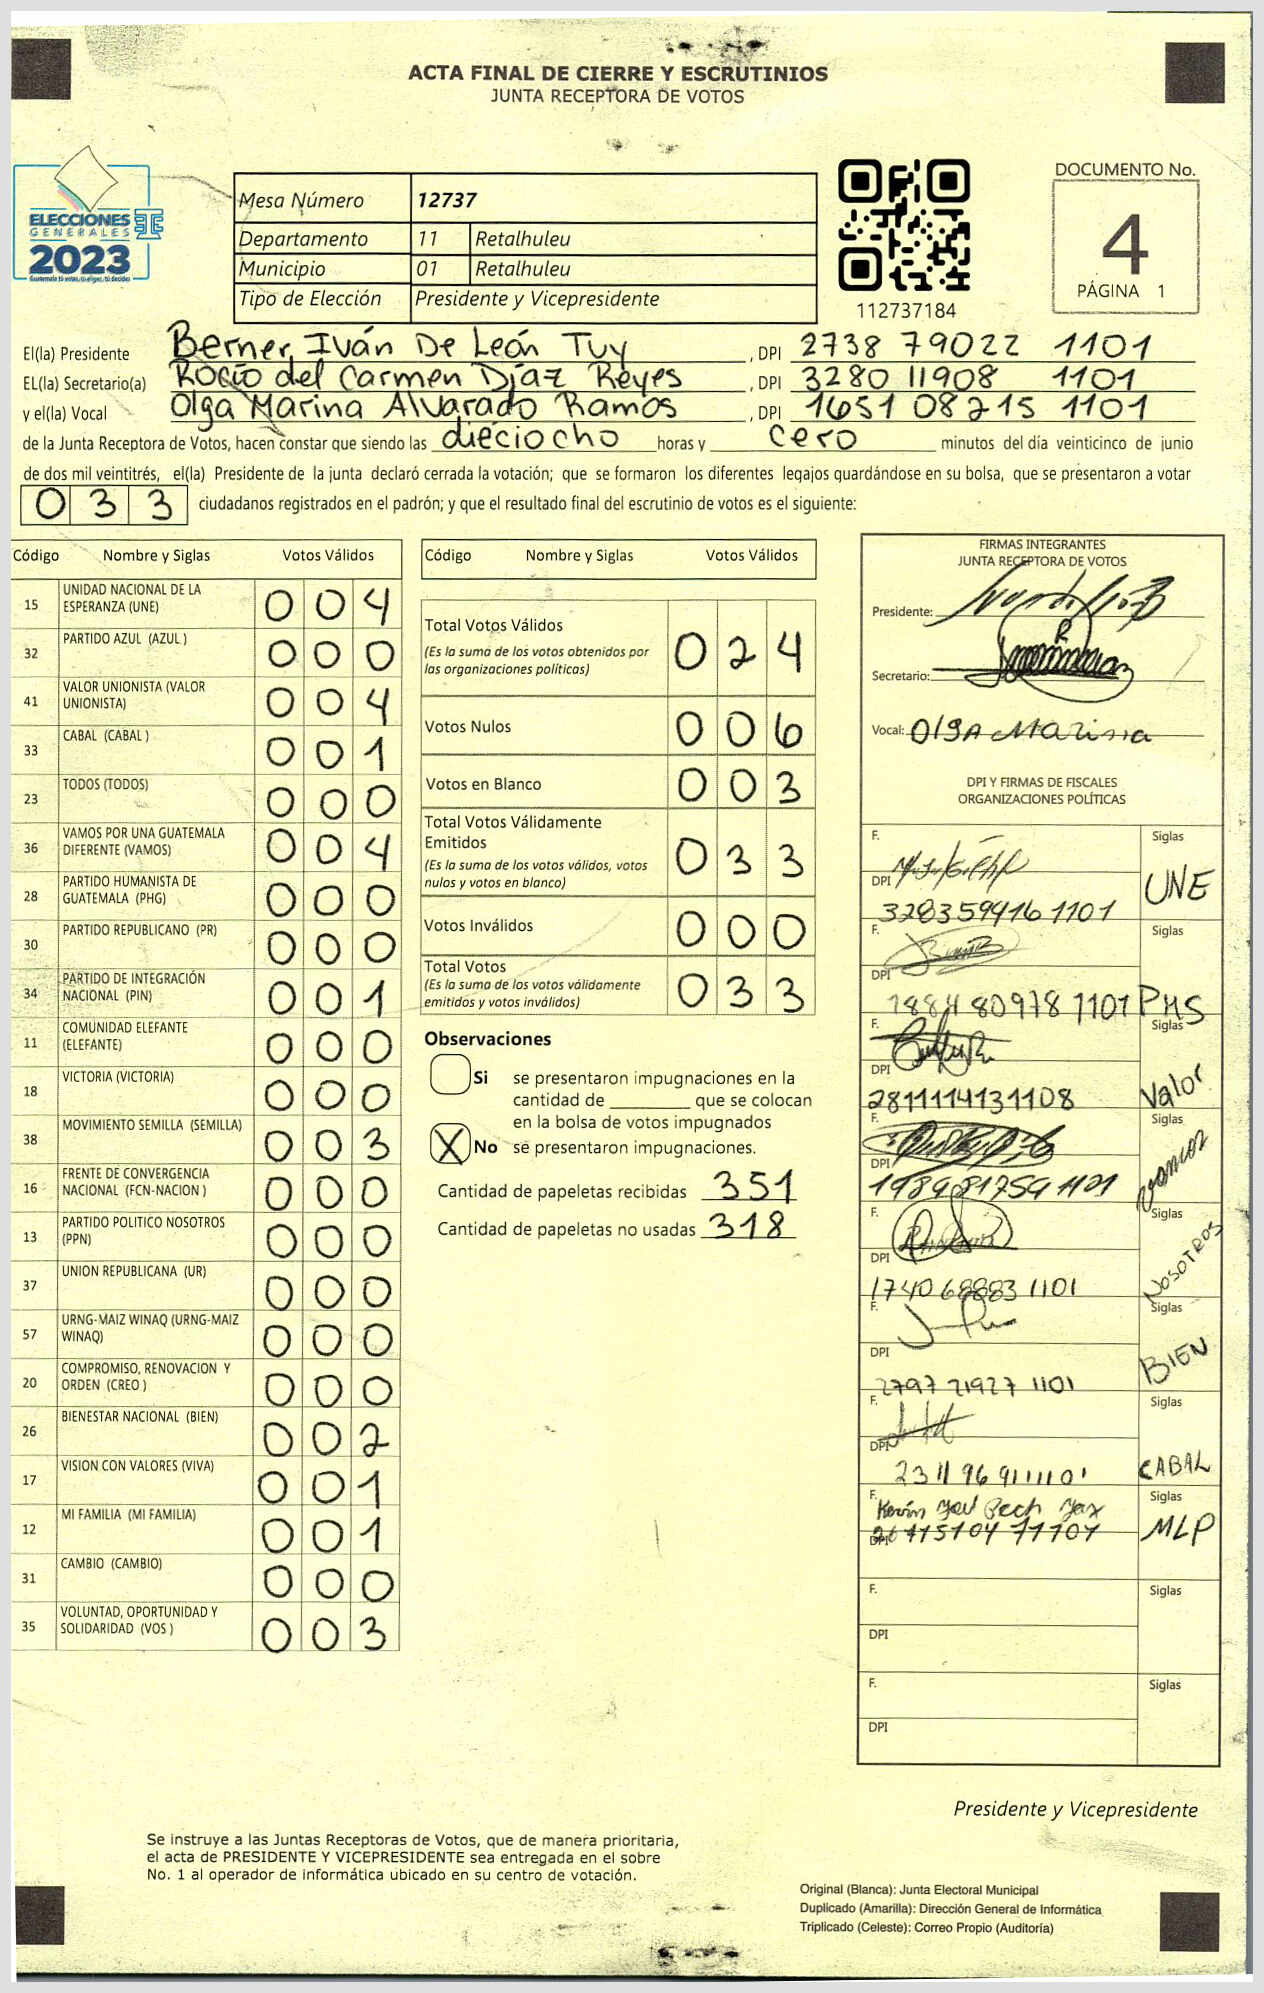 ACTA FINAL DE CIERRE Y ESCRUTINIOS
JUNTA RECEPTORA DE VOTOS
ELECCIONES
GENERALES
2023
Guatemala tú votas, tú eliges, tú decides
Mesa Número 12737
Departamento 11 Retalhuleu
Municipio 01 Retalhuleu
Tipo de Elección Presidente y Vicepresidente
112737184
DOCUMENTO No.
4
PÁGINA 1
El(la) Presidente Berner Iván De León Tuy , DPI 2738 79022 1101
EL(la) Secretario(a) Rocío del Carmen Díaz Reyes , DPI 3280 11908 1101
y el(la) Vocal Olga Marina Alvarado Ramos , DPI 1651 08215 1101
de la Junta Receptora de Votos, hacen constar que siendo las dieciocho horas y cero minutos del día veinticinco de junio
de dos mil veintitrés, el(la) Presidente de la junta declaró cerrada la votación; que se formaron los diferentes legajos guardándose en su bolsa, que se presentaron a votar
033 ciudadanos registrados en el padrón; y que el resultado final del escrutinio de votos es el siguiente:
Código Nombre y Siglas Votos Válidos
15 UNIDAD NACIONAL DE LA
ESPERANZA (UNE) 004
32 PARTIDO AZUL (AZUL ) 000
41 VALOR UNIONISTA (VALOR
UNIONISTA) 004
33 CABAL (CABAL ) 001
23 TODOS (TODOS) 000
36 VAMOS POR UNA GUATEMALA
DIFERENTE (VAMOS) 004
28 PARTIDO HUMANISTA DE
GUATEMALA (PHG) 000
30 PARTIDO REPUBLICANO (PR) 000
34 PARTIDO DE INTEGRACIÓN
NACIONAL (PIN) 001
11 COMUNIDAD ELEFANTE
(ELEFANTE) 000
18 VICTORIA (VICTORIA) 000
38 MOVIMIENTO SEMILLA (SEMILLA) 003
16 FRENTE DE CONVERGENCIA
NACIONAL (FCN-NACION ) 000
13 PARTIDO POLITICO NOSOTROS
(PPN) 000
37 UNION REPUBLICANA (UR) 000
57 URNG-MAIZ WINAQ (URNG-MAIZ
WINAQ) 000
20 COMPROMISO, RENOVACION Y
ORDEN (CREO ) 000
26 BIENESTAR NACIONAL (BIEN) 002
17 VISION CON VALORES (VIVA) 001
12 MI FAMILIA (MI FAMILIA) 001
31 CAMBIO (CAMBIO) 000
35 VOLUNTAD, OPORTUNIDAD Y
SOLIDARIDAD (VOS ) 003
Código Nombre y Siglas Votos Válidos
Total Votos Válidos
(Es la suma de los votos obtenidos por
las organizaciones políticas) 024
Votos Nulos 006
Votos en Blanco 003
Total Votos Válidamente
Emitidos
(Es la suma de los votos válidos, votos
nulos y votos en blanco) 033
Votos Inválidos 000
Total Votos
(Es la suma de los votos válidamente
emitidos y votos inválidos) 033
Observaciones
Si se presentaron impugnaciones en la
cantidad de ________ que se colocan
en la bolsa de votos impugnados
X No se presentaron impugnaciones.
Cantidad de papeletas recibidas 351
Cantidad de papeletas no usadas 318
FIRMAS INTEGRANTES
JUNTA RECEPTORA DE VOTOS
Presidente:
Secretario:
Vocal: Olga Marina
DPI Y FIRMAS DE FISCALES
ORGANIZACIONES POLÍTICAS
F. Siglas
DPI UNE
3283594161101
F. Siglas
DPI
1884 80978 1101 PHS
F. Siglas
DPI
2811114131108 Valor
F. Siglas
DPI
1989817591101 vamos
F. Siglas
DPI
1740 68883 1101 NOSOTROS
F. Siglas
DPI
2797 21927 1101 BIEN
F. Siglas
DPI
2311 96911 1101 CABAL
F. Siglas
Kevin
DPI MLP
F. Siglas
DPI
F. Siglas
DPI
Presidente y Vicepresidente
Se instruye a las Juntas Receptoras de Votos, que de manera prioritaria,
el acta de PRESIDENTE Y VICEPRESIDENTE sea entregada en el sobre
No. 1 al operador de informática ubicado en su centro de votación.
Original (Blanca): Junta Electoral Municipal
Duplicado (Amarilla): Dirección General de Informática
Triplicado (Celeste): Correo Propio (Auditoría)